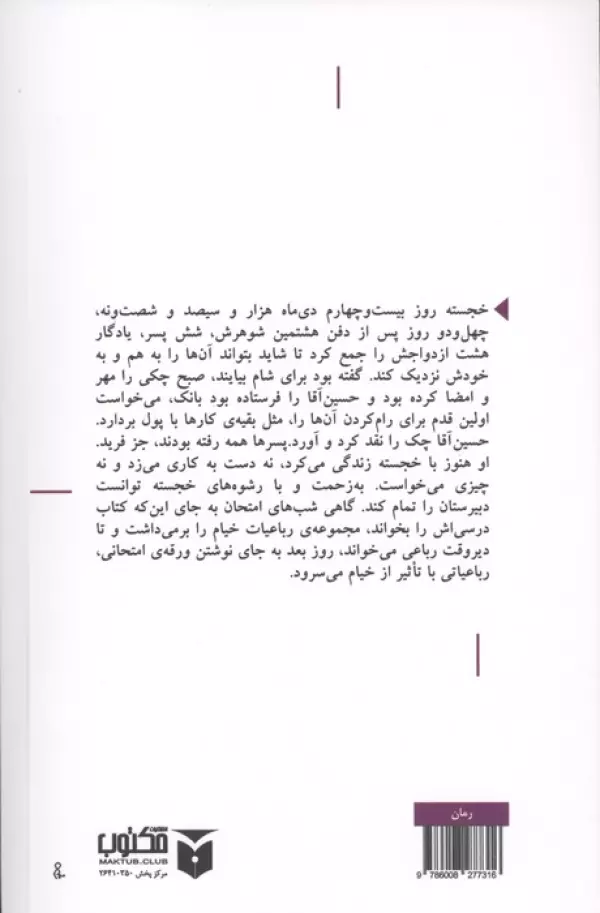 خجسته روز بیست‌وچهارم دی‌ماه هزار و سیصد و شصت‌ونه،
چهل‌ودو روز پس از دفن هشتمین شوهرش، شش پسر، یادگار
هشت ازدواجش را جمع کرد تا شاید بتواند آن‌ها را به هم و به
خودش نزدیک کند. گفته بود برای شام بیایند، صبح چکی را مهر
و امضا کرده بود و حسین‌آقا را فرستاده بود بانک، می‌خواست
اولین قدم برای رام‌کردن آن‌ها را، مثل بقیه‌ی کارها با پول بردارد.
حسین‌آقا چک را نقد کرد و آورد.پسرها همه رفته بودند، جز فرید.
او هنوز با خجسته زندگی می‌کرد، نه دست به کاری می‌زد و نه
چیزی می‌خواست. به‌زحمت و با رشوه‌های خجسته توانست
دبیرستان را تمام کند. گاهی شب‌های امتحان به جای این‌که کتاب
درسی‌اش را بخواند، مجموعه‌ی رباعیات خیام را برمی‌داشت و تا
دیروقت رباعی می‌خواند، روز بعد به جای نوشتن ورقه‌ی امتحانی،
رباعیاتی با تأثیر از خیام می‌سرود.
رمان
9 786008 277316
انتشارات
مکتوب
MAKTUB.CLUB
مرکز پخش ۲۶۴۱۰۲۵۰